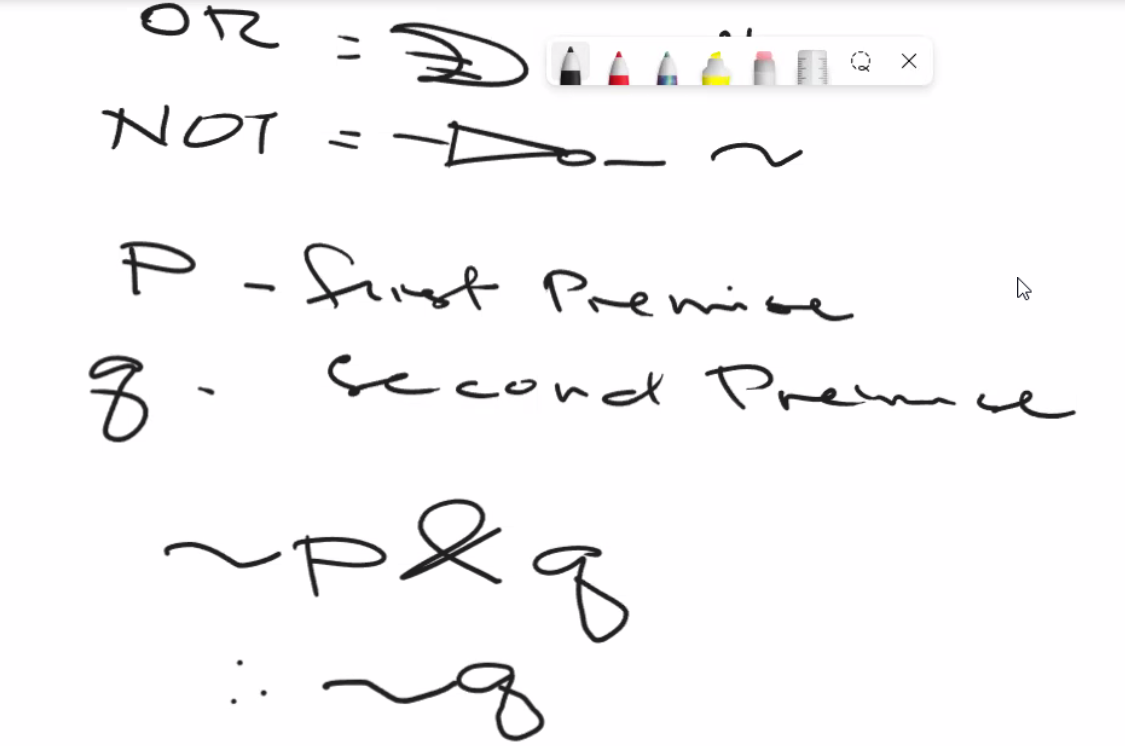 OR =
NOT = ~
P - first Premise
q - second Premise
~p & q
∴ ~q